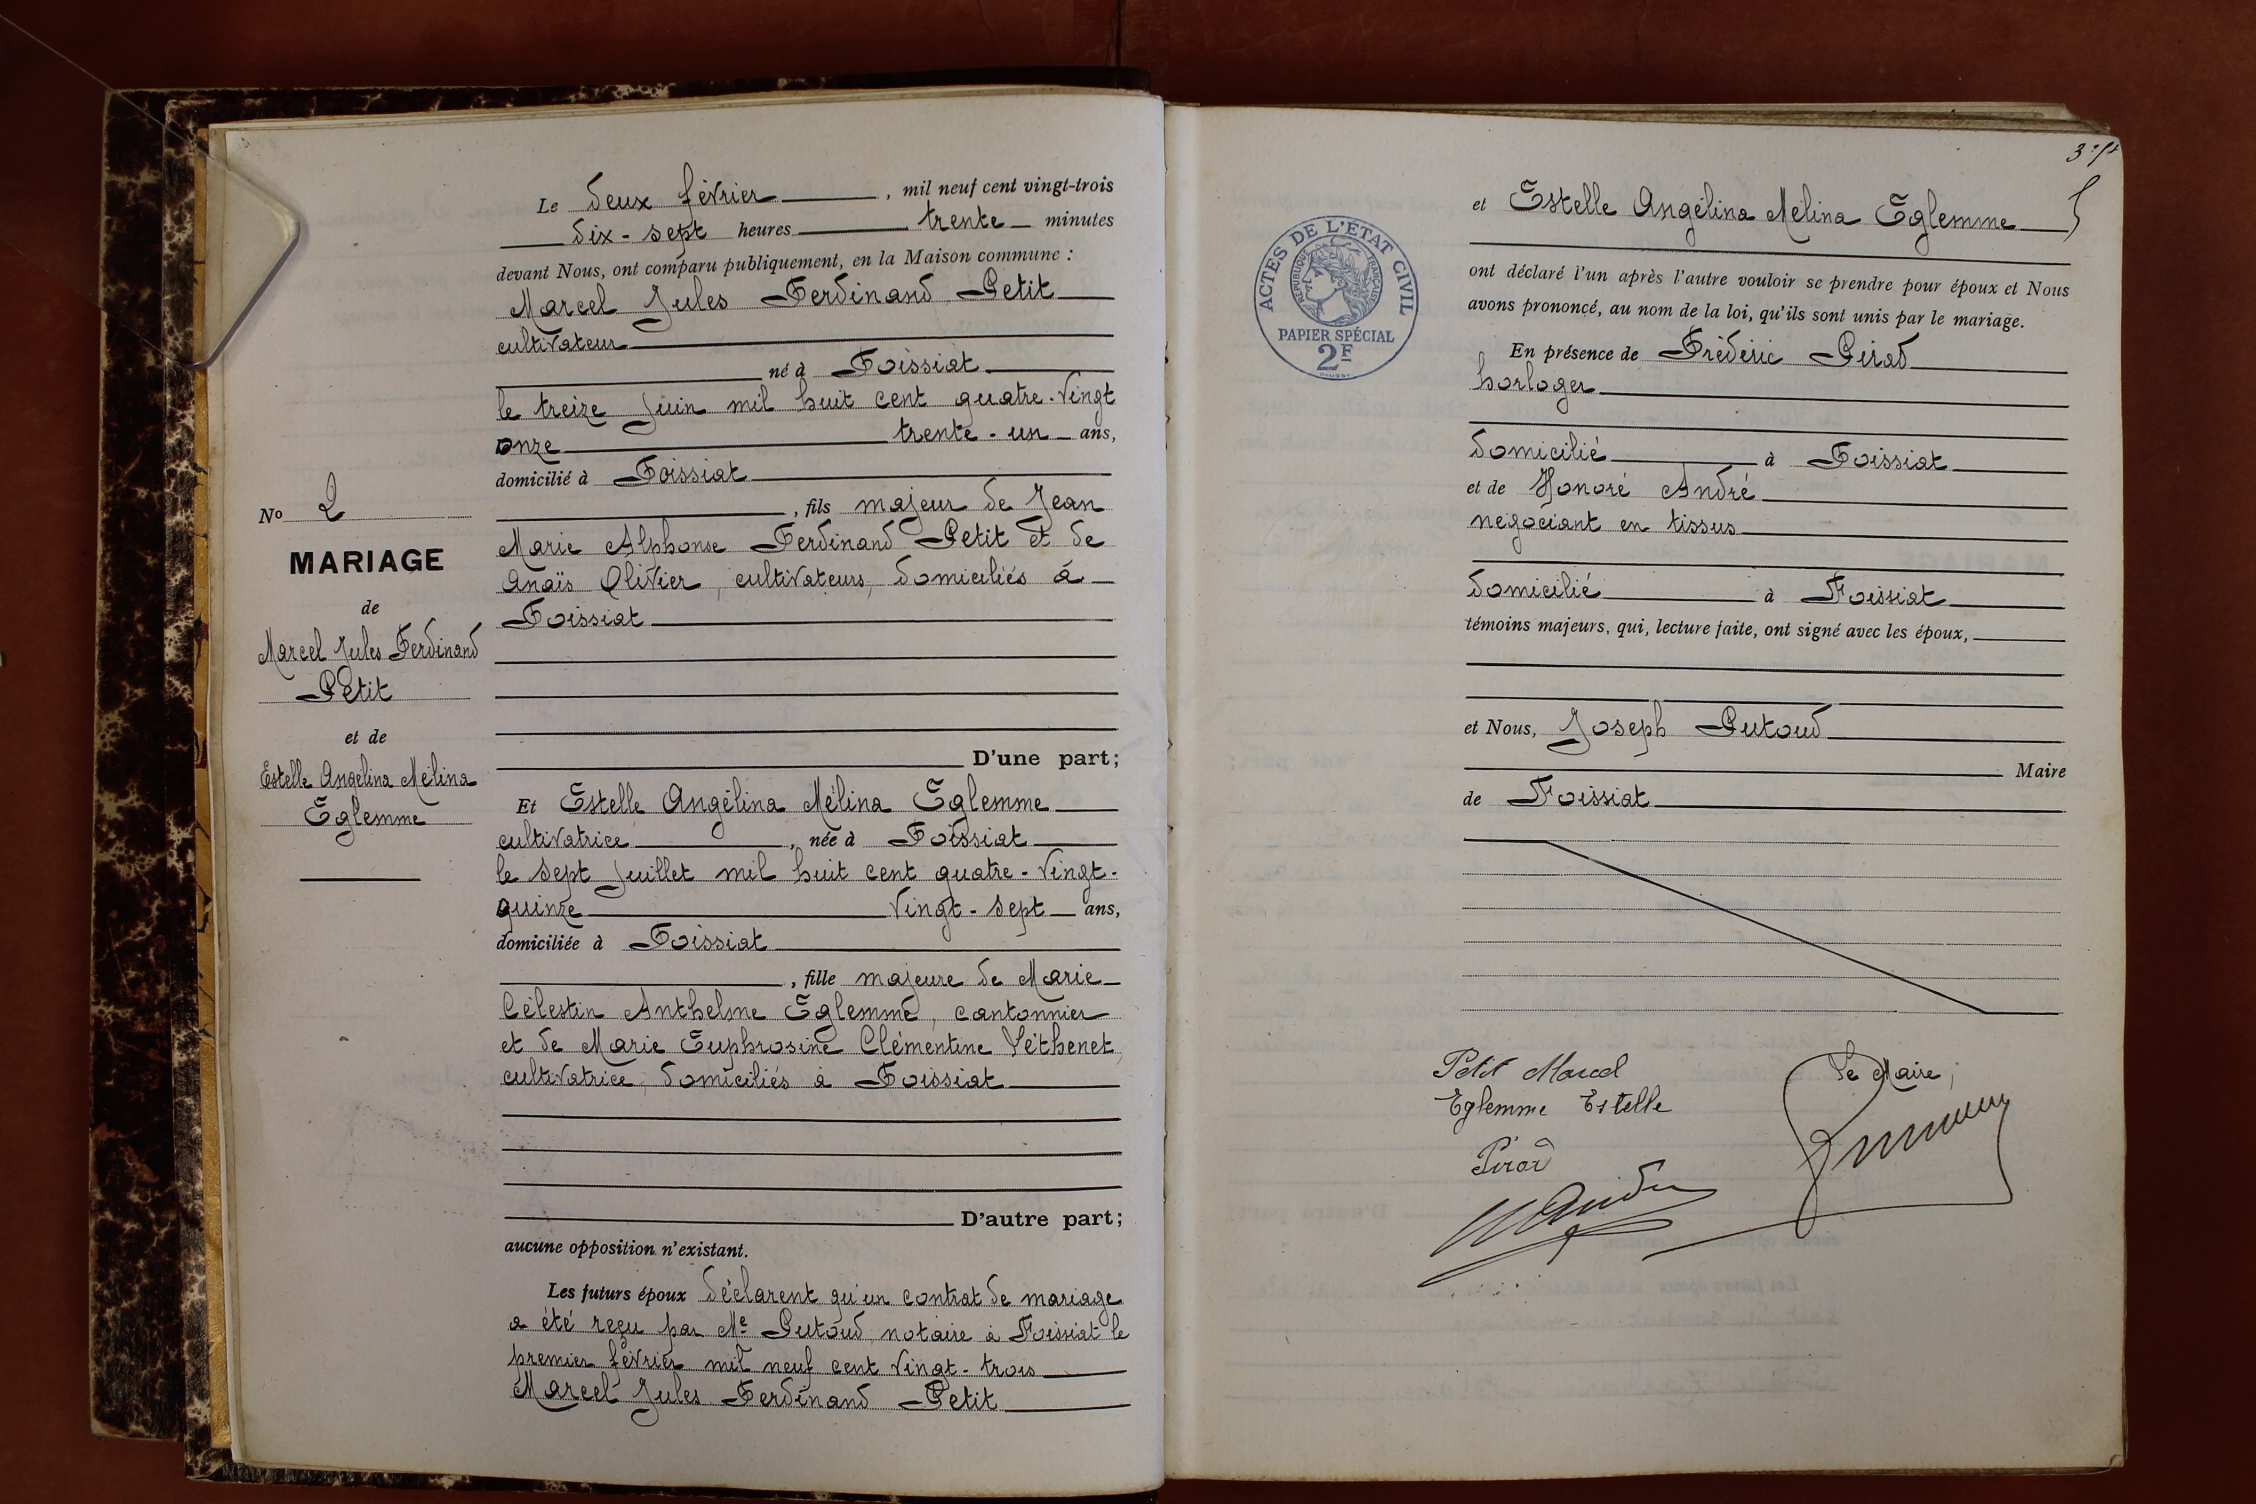 N° 2
MARIAGE
de
Marcel Jules Ferdinand
Petit
et de
Estelle Angélina Mélina
Eglemme
Le deux février, mil neuf cent vingt-trois
dix-sept heures trente minutes
devant Nous, ont comparu publiquement, en la Maison commune :
Marcel Jules Ferdinand Petit
cultivateur
né à Foissiat
le treize juin mil huit cent quatre-vingt
onze trente-un ans,
domicilié à Foissiat
, fils majeur de Jean
Marie Alphonse Ferdinand Petit et de
Anaïs Olivier, cultivateurs, domiciliés à
Foissiat
D'une part;
Et Estelle Angélina Mélina Eglemme
cultivatrice, née à Foissiat
le sept juillet mil huit cent quatre-vingt-
quinze vingt-sept ans,
domiciliée à Foissiat
, fille majeure de Marie
Célestin Anthelme Eglemme, cantonnier
et de Marie Euphrosine Clémentine Péthenet,
cultivatrice, domiciliés à Foissiat
D'autre part;
aucune opposition n'existant.
Les futurs époux déclarent qu'un contrat de mariage
a été reçu par Me Putoud notaire à Foissiat le
premier février mil neuf cent vingt-trois
Marcel Jules Ferdinand Petit
ACTES DE L'ÉTAT CIVIL
RÉPUBLIQUE FRANÇAISE
PAPIER SPÉCIAL
2F
et Estelle Angélina Mélina Eglemme
ont déclaré l'un après l'autre vouloir se prendre pour époux et Nous
avons prononcé, au nom de la loi, qu'ils sont unis par le mariage.
En présence de Frédéric Pirad
horloger
domicilié à Foissiat
et de Honoré André
négociant en tissus
domicilié à Foissiat
témoins majeurs, qui, lecture faite, ont signé avec les époux,
et Nous, Joseph Putoud
Maire
de Foissiat
Petit Marcel
Eglemme Estelle
Le Maire,
Pirad